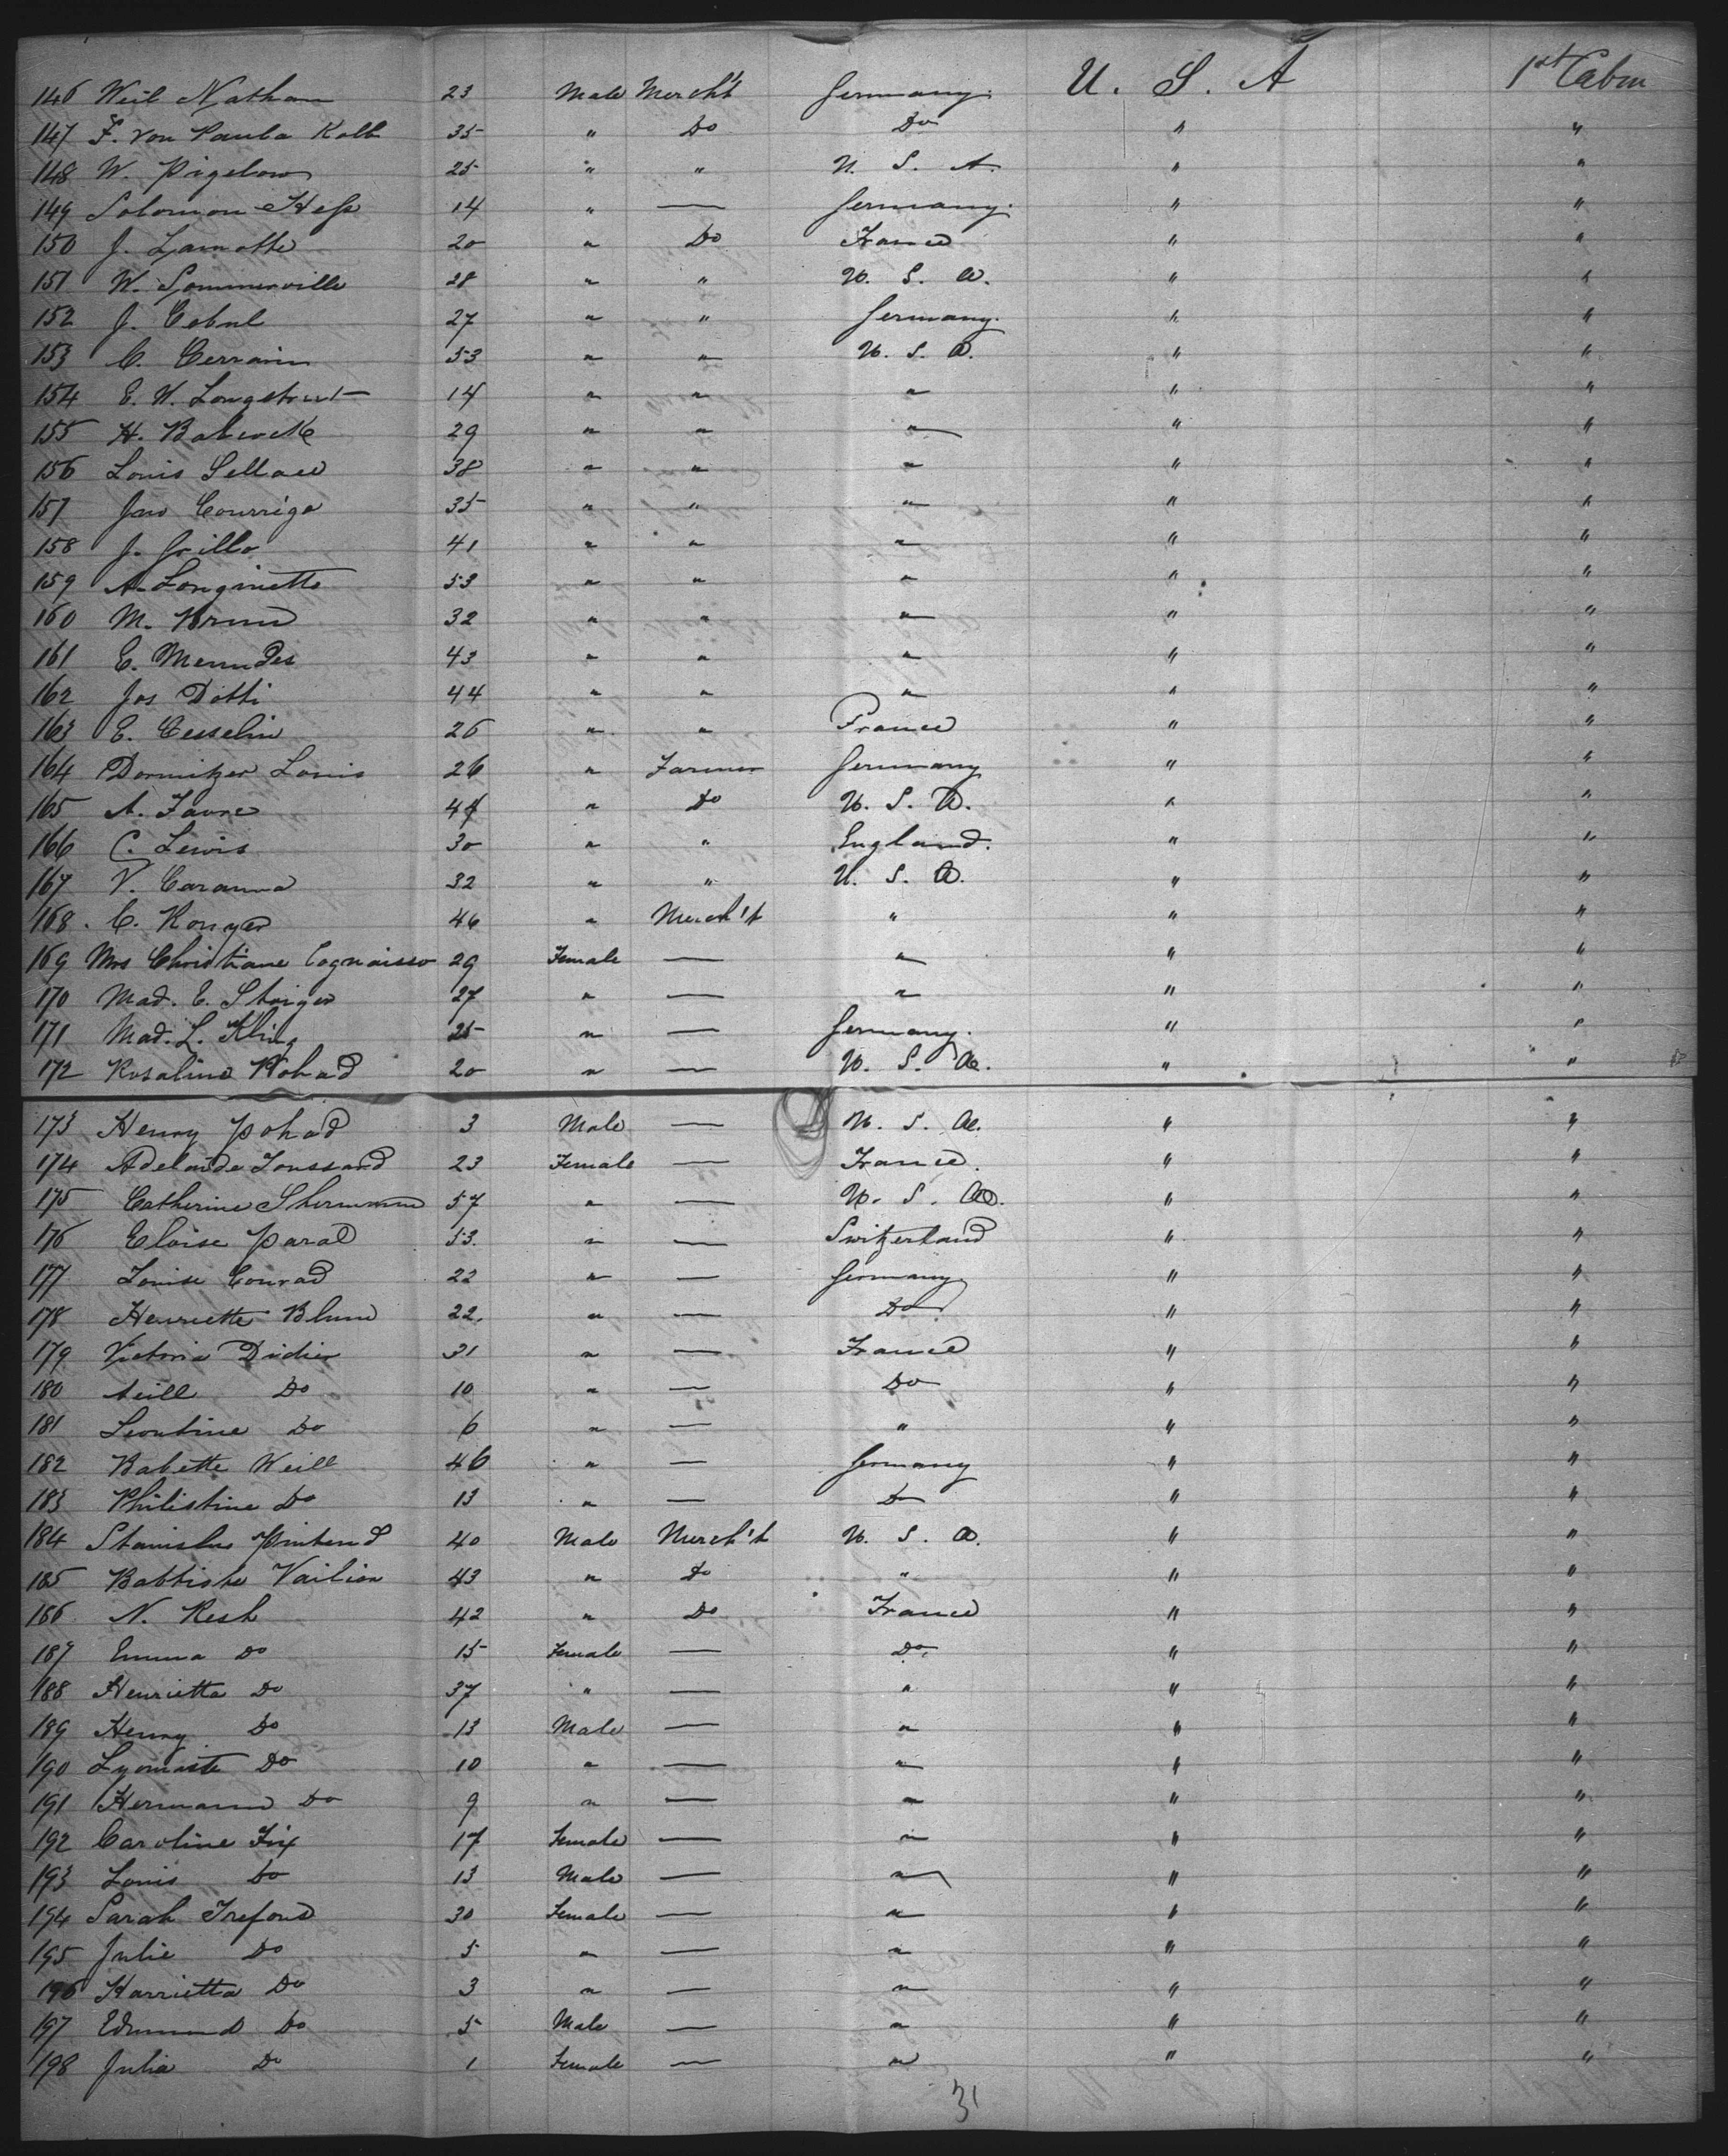 146 Weil Nathan 23 Male Merch't Germany. U. S. A 1st Cabin
147 F. von Paula Kolb 35 " Do Do " "
148 W. Pigelow 25 " " U. S. A. " "
149 Solomon Hess 14 " — Germany. " "
150 J. Lamothe 20 " Do France " "
151 W. Sommerville 28 " " U. S. A. " "
152 J. 27 " " Germany. " "
153 C. Cerrain 53 " " U. S. A. " "
154 E. W. Longstreet 14 " " " " "
155 H. Babcock 29 " " " " "
156 Louis 38 " " " " "
157 Courrige 35 " " " " "
158 J. Grillo 41 " " " " "
159 A. Longinette 53 " " " " "
160 M. Brun 32 " " " " "
161 E. Menudes 43 " " " " "
162 Jos Dotti 44 " " " " "
163 E. Cesselin 26 " " France " "
164 Dormitzer Louis 26 " Farmer Germany " "
165 A. Favre 44 " Do U. S. A. " "
166 C. Lewis 30 " " England. " "
167 V. Caranna 32 " " U. S. A. " "
168. C. 46 " Merch't " " "
169 Mrs Christiane Cognaisso 29 Female — " " "
170 Mad. E. Steiger 27 " — " " "
171 Mad. L. Kling 25 " — Germany. " "
172 Rosaline Pohad 20 " — U. S. A. " "
173 Henry Pohad 3 Male — U. S. A. " "
174 Adelaide Joussard 23 Female — France. " "
175 Catherine Shermann 57 " — U. S. A. " "
176 Eloise Paral 53. " — Switzerland " "
177 Louise Conrad 22 " — Germany " "
178 Henriette Blum 22. " — Do " "
179 Victoria Didier 31 " — France " "
180 Do 10 " — Do " "
181 Leontine Do 6 " — " " "
182 Babette Weill 46 " — Germany " "
183 Philistine Do 13 " — Do " "
184 Stanislas 40 Male Merch't U. S. A. " "
185 Battiste Vailion 43 " Do " " "
186 N. Resh 42 " Do France " "
187 Emma Do 15 Female — Do. " "
188 Henrietta Do 37 " — " " "
189 Henry Do 13 Male — " " "
190 Do 10 " — " " "
191 Hermann Do 9 " — " " "
192 Caroline Fix 17 Female — " " "
193 Louis Do 13 Male — " " "
194 Sarah Trefond 30 Female — " " "
195 Julie Do 5 " — " " "
196 Harrietta Do 3 " — " " "
197 Edmund Do 5 Male — " " "
198 Julia Do 1 Female — " " "
31